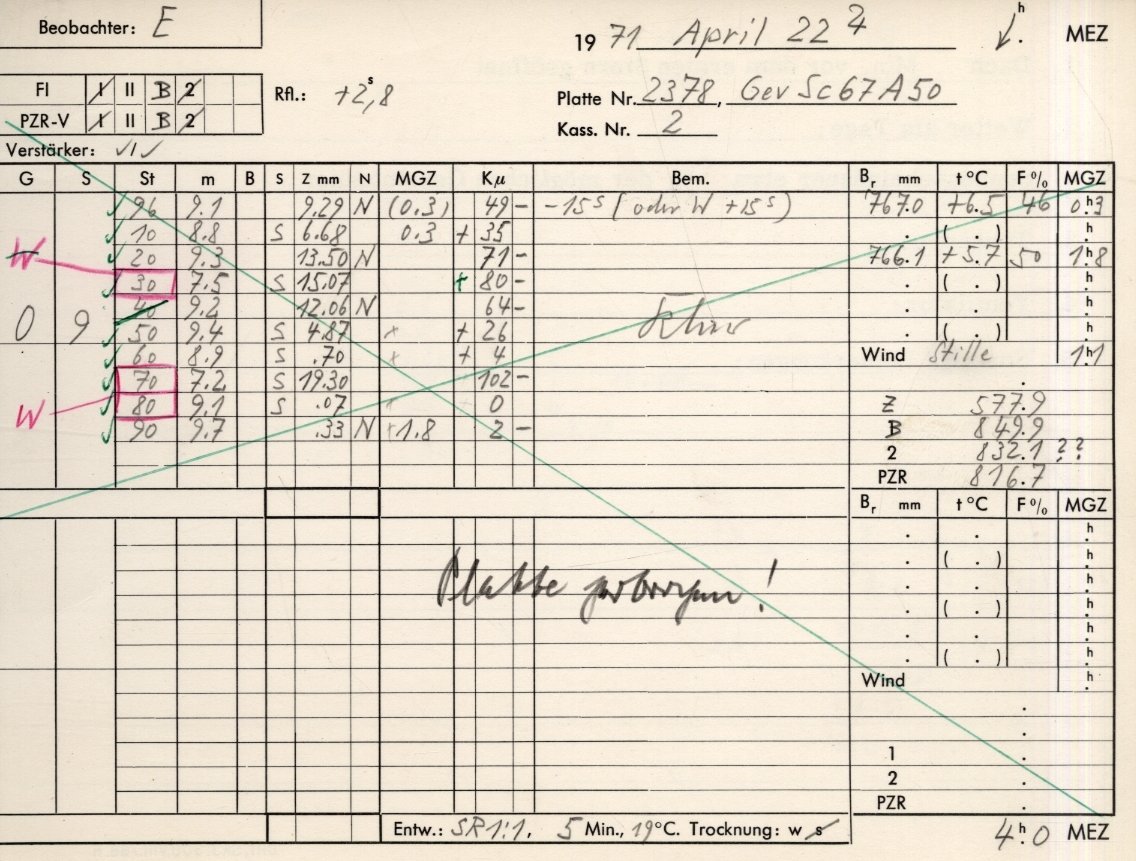 Beobachter: E
19 71 April 22 h. MEZ
FI I II B 2
PZR-V I II B 2
Rfl.: +2,8 s
Platte Nr. 2378, Gev Sc67A50
Kass. Nr. 2
Verstärker: √ I √
G S St m B S Z mm N MGZ Kμ Bem. Br mm t °C F % MGZ
96 9.1 9.29 N (0.3) 49 - -15 s (oder W +15 s) 767.0 +6.5 46 0.3 h
10 8.8 S 6.68 0.3 + 35 . ( . ) h.
W 20 9.3 13.50 N 71 - 766.1 +5.7 50 1.8 h
30 7.5 S 15.07 + 80 - . ( . ) h.
40 9.2 12.06 N 64 - . . h.
0 9 50 9.4 S 4.87 × + 26 . ( . ) h.
60 8.9 S .70 × + 4 Wind Stille 1.1 h
70 7.2 S 19.30 102 - .
W 80 9.1 S .07 × 0 Z 577.9
90 9.7 .33 N 1.8 2 - B 849.9
2 832.1 ??
PZR 816.7
Br mm t °C F % MGZ
. . h.
. ( . ) h.
. . h.
Platte
!
. ( . ) h.
. . h.
. ( . ) h.
Wind h.
.
.
1 .
2 .
PZR .
Entw.: SR 1:1, 5 Min., 19 °C. Trocknung: w s 4.0 h MEZ